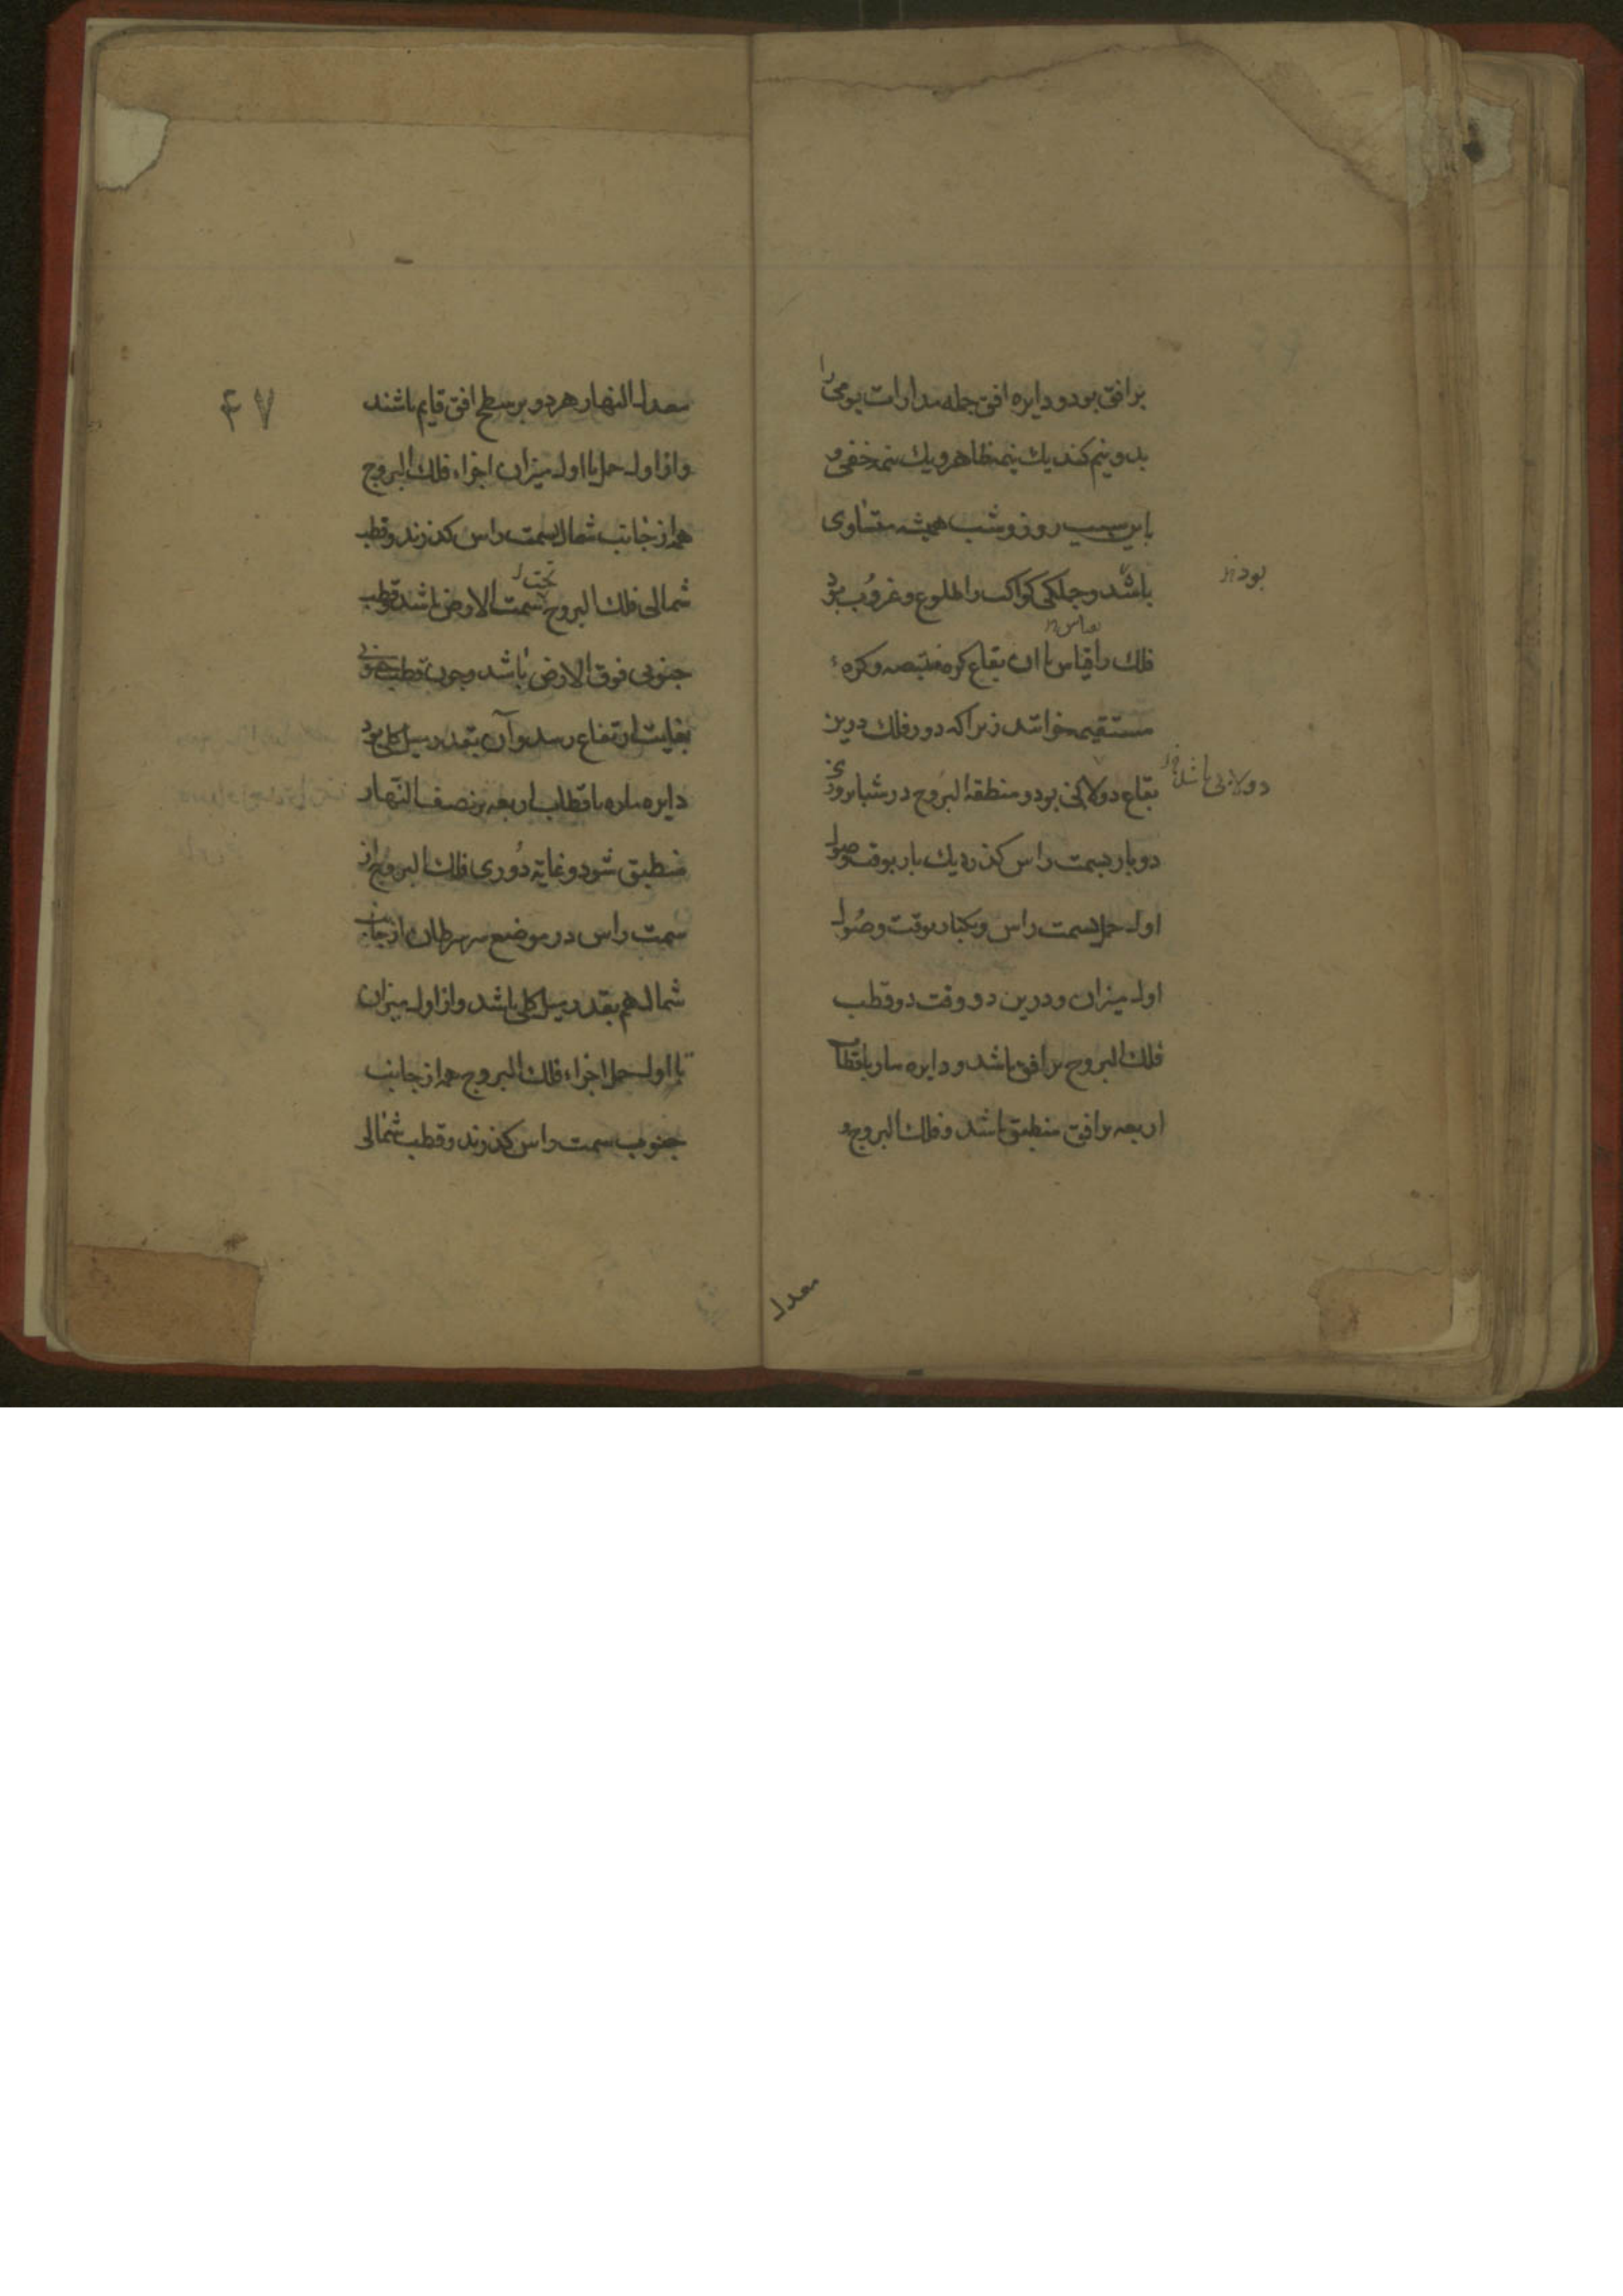 بر افق بود و دایره افق جمله مدارات یومی را
بدو نیم کند یک نیمه ظاهر و یک نیمه خفی و
باین سبب روز و شب همیشه متساوی
باشد و جملکی کواکب را طلوع و غروب بود
بود
فلک را قیاس با ان بقاع کره منتصبه و کره
مستقیمه خوانند زیرا که دور فلک درین
بقاع دولابی بود و منطقة البروج در شبانروزی
دولابی باشد
دو بار بسمت راس کذرد یک بار بوقت وصول
اول حمل بسمت راس و یکبار بوقت وصُول
اول میزان و درین دو وقت دو قطب
فلک البروج بر افق باشد و دایره ماره باقطاب
اربعه بر افق منطبق باشد و فلک البروج و
معدل
۴۷
معدل النهار هر دو بر سطح افق قایم باشند
و از اول حمل تا اول میزان اجزاء فلک البروج
همه از جانب شمال بسمت راس کذرند و قطب
شمالی فلک البروج تحت الارض باشد و قطب
جنوبی فوق الارض باشد و چون قطب جنوبی
بغایت ارتفاع رسد و آن بقدر میل کلی بود
دایره ماره باقطاب اربعه بر نصف النهار
منطبق شود و غایة دُوری فلک البروج از
سمت راس در موضع سر سرطان از جانب
شمال هم بقدر میل کلی باشد و از اول میزان
تا اول حمل اجزاء فلک البروج همه از جانب
جنوب سمت راس کذرند و قطب شمالی